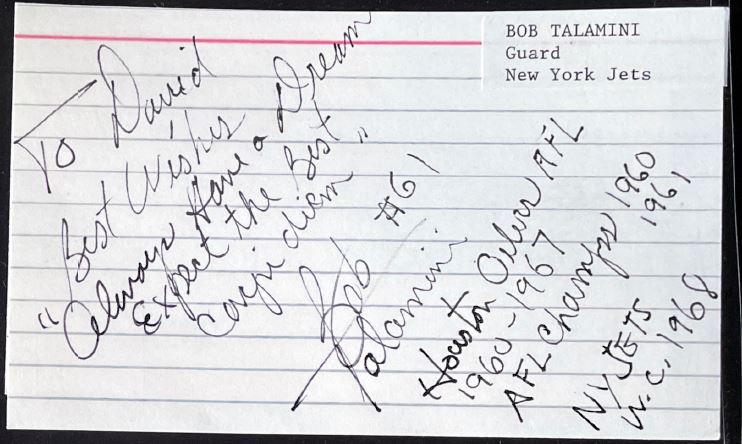 BOB TALAMINI
Guard
New York Jets
To David
Best Wishes
"Always Have a Dream
Expect the Best
Carpi diem"
Bob Talamini #61
Houston Oilers AFL
1960-1967
AFL Champs 1960
1961
NY JETS
W.C. 1968